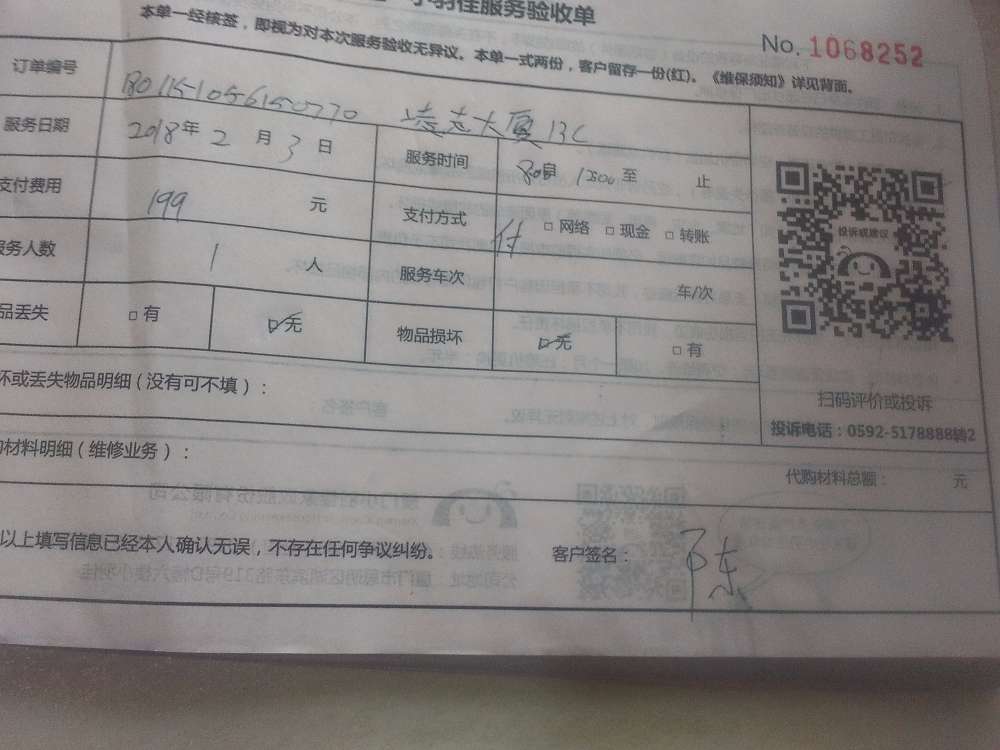 小羽佳服务验收单
本单一经续签，即视为对本次服务验收无异议。本单一式两份，客户留存一份(红)。《维保须知》详见背面。
No. 1068252
订单编号
凌志大厦13C
服务日期 2018年2月3日 服务时间 至 止
支付费用 199 元 支付方式 付 □网络 □现金 □转账
服务人数 1 人 服务车次 车/次
品丢失 □有 ☑无 物品损坏 ☑无 □有
投诉或建议
扫码评价或投诉
投诉电话：0592-5178888转2
坏或丢失物品明细(没有可不填)：
购材料明细(维修业务)：
代购材料总额： 元
以上填写信息已经本人确认无误，不存在任何争议纠纷。 客户签名：陈